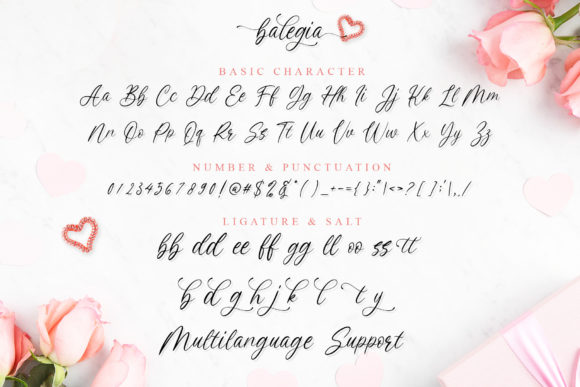 balegia
BASIC CHARACTER
Aa Bb Cc Dd Ee Ff Gg Hh Ii Jj Kk Ll Mm
Nn Oo Pp Qq Rr Ss Tt Uu Vv Ww Xx Yy Zz
NUMBER & PUNCTUATION
01234567890!@#$%&*()_+-={}:"|<>?[];'\,./
LIGATURE & SALT
bb dd ee ff gg ll oo ss tt
b d g h j k l t y
Multilanguage Support